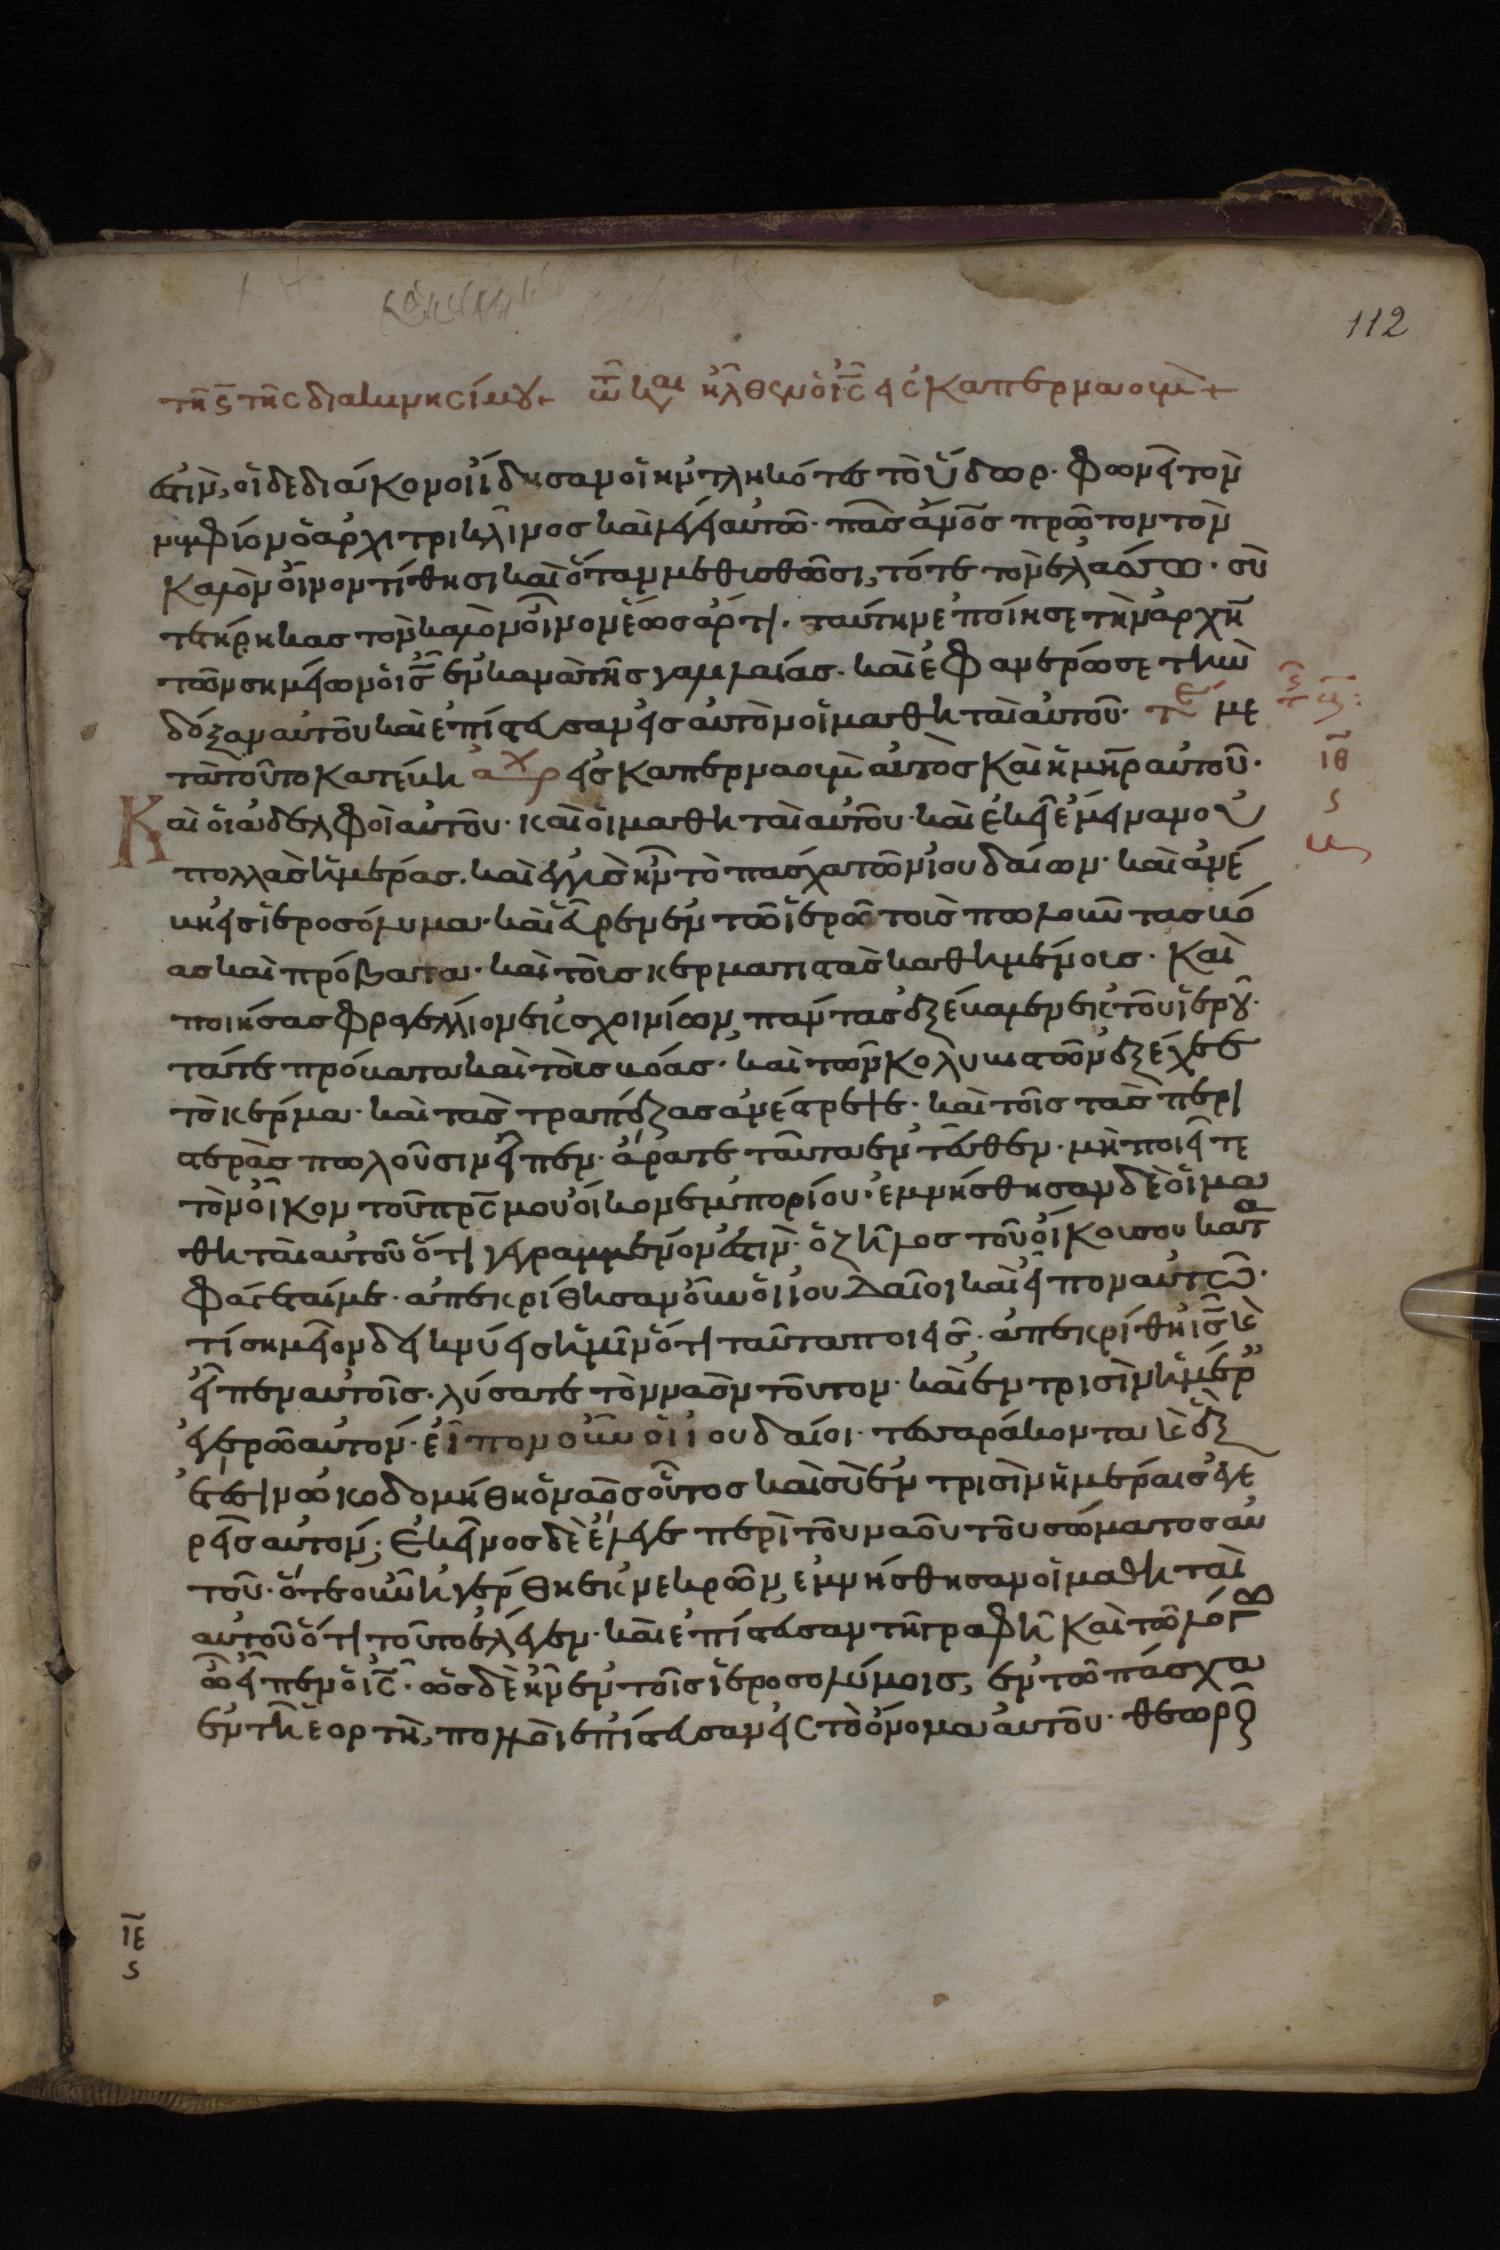 112
τῆ ϛ τῆς διακινησίμου + τῶ καιρῶ ἦλθεν ὁ ις εἰς Καπερναουμ +
ἐστὶν, οἱ δὲ διάκονοι ἴδησαν οἱ ἠντληκότες τὸ ὕδωρ. φωνεῖ τὸν
νυμφίον ὁ ἀρχιτρικλῖνος καὶ λέγει αὐτῶ. πᾶς ἄνος πρῶτον τὸν
καλὸν οἶνον τίθησι καὶ ὅταν μεθισθῶσι, τότε τὸν ἐλάσσω. σὺ
τετήρηκας τὸν καλὸν οἶνον ἕως ἄρτι. ταύτην ἐποίησε τὴν ἀρχὴν
τῶν σημείων ὁ ις ἐν κανᾶ τῆς γαλιλαίας. καὶ ἐφανέρωσε τὴν
δόξαν αὐτοῦ καὶ ἐπίστευσαν εἰς αὐτὸν οἱ μαθηταὶ αὐτοῦ. τε με
τὰ τοῦτο κατέβη αρχ εἰς καπερναοὺμ αὐτὸς καὶ ἡ μηρ αὐτοῦ.
Καὶ οἱ ἀδελφοὶ αὐτοῦ. καὶ οἱ μαθηταὶ αὐτοῦ. καὶ ἐκεῖ ἔμειναν οὐ
πολλὰς ἡμέρας. καὶ ἐγγὺς ἦν τὸ πάσχα τῶν ἰουδαίων. καὶ ἀνέ
βη εἰς ἱεροσόλυμα. καὶ εὗρεν ἐν τῶ ἱερῶ τοὺς πωλοῦντας βό
ας καὶ πρόβατα. καὶ τοὺς κερματιστὰς καθημένους. Καὶ
ποιήσας φραγέλλιον ἐκ σχοινίων, πάντας ἐξέβαλεν ἐκ τοῦ ἱεροῦ.
τά τε πρόβατα καὶ τοὺς βόας. καὶ τῶν κολυβιστῶν ἐξέχεε
τὸ κέρμα. καὶ τὰς τραπέζας ἀνέστρεψε. καὶ τοῖς τὰς περι
στερὰς πωλοῦσιν εἶπεν. ἄρατε ταῦτα ἐντεῦθεν. μὴ ποιεῖτε
τὸν οἶκον τοῦ πρς μου οἶκον ἐμπορίου. ἐμνήσθησαν δὲ οἱ μα
θηταὶ αὐτοῦ ὅτι γεγραμμένον ἐστὶν. ὁ ζῆλος τοῦ οἴκου σου κατα
φάγεταί με. ἀπεκρίθησαν οὖν οἱ ἰουδαῖοι καὶ εἶπον αὐτῶ.
τί σημεῖον δεικνύεις ἡμῖν ὅτι ταῦτα ποιεῖς. ἀπεκρίθη ις καὶ
εἶπεν αὐτοῖς. λύσατε τὸν ναὸν τοῦτον. καὶ ἐν τρισὶν ἡμέραις
ἐγερῶ αὐτόν. εἶπον οὖν οἱ ἰουδαίοι. τεσσαράκοντα καὶ ἓξ
ἔτεσιν ὠκοδομήθη ὁ ναὸς οὗτος καὶ σὺ ἐν τρισὶν ἡμέραις ἐγε
ρεῖς αὐτόν; ἐκεῖνος δὲ ἔλεγε περὶ τοῦ ναοῦ τοῦ σώματος αὐ
τοῦ. ὅτε οὖν ἠγέρθη ἐκ νεκρῶν, ἐμνήσθησαν οἱ μαθηταὶ
αὐτοῦ ὅτι τοῦτο ἔλεγεν. καὶ ἐπίστευσαν τῆ γραφῆ καὶ τῶ λόγω
ὧ εἶπεν ὁ ις. ὡς δὲ ἦν ἐν τοῖς ἱεροσολύμοις, ἐν τῶ πάσχα
ἐν τῆ ἑορτῆ, πολλοὶ ἐπίστευσαν εἰς τὸ ὄνομα αὐτοῦ. θεωροῦ
ιθ
ϛ
ιε
ϛ